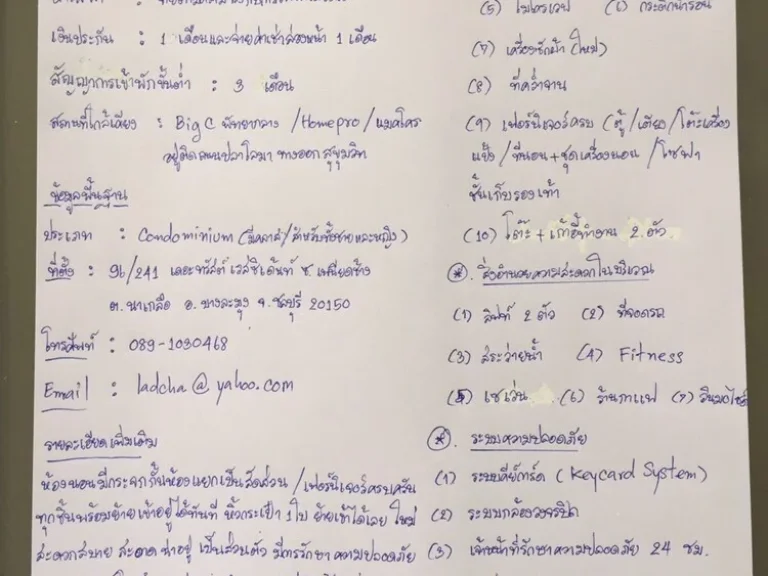 เงินประกัน : 1 เดือนและจ่ายค่าเช่าล่วงหน้า 1 เดือน
สัญญาการเข้าพักขั้นต่ำ : 3 เดือน
สถานที่ใกล้เคียง : Big C พัทยากลาง / Homepro / แมคโคร
อยู่ติดถนนปลาโลมา ทางออกสุขุมวิท
ข้อมูลพื้นฐาน
ประเภท : Condominium (มีคลาส/สำหรับทั้งชายและหญิง)
ที่ตั้ง : 96/241 เดอะทรัสต์ เรสซิเด้นท์ ซ.
ต. นาเกลือ อ. บางละมุง จ. ชลบุรี 20150
โทรศัพท์ : 089-1030468
Email : ladcha@yahoo.com
รายละเอียดเพิ่มเติม
ห้องนอนมีกระจกกั้นห้องแยกเป็นสัดส่วน / เฟอร์นิเจอร์ครบครัน
ทุกชิ้นพร้อมย้ายเข้าอยู่ได้ทันที หิ้วกระเป๋า 1 ใบ ย้ายเข้าได้เลย ใหม่
สะดวกสบาย สะอาด น่าอยู่ เป็นส่วนตัว มีการรักษาความปลอดภัย
(5) ไมโครเวฟ (6) กระติกน้ำร้อน
(7) เครื่องซักผ้า (ใหม่)
(8) ที่คว่ำจาน
(9) เฟอร์นิเจอร์ครบ (ตู้/เตียง/โต๊ะเครื่อง
แป้ง / ที่นอน + ชุดเครื่องนอน / โซฟา
ชั้นเก็บรองเท้า
(10) โต๊ะ + เก้าอี้ทำงาน 2 ตัว
* สิ่งอำนวยความสะดวกในบริเวณ
(1) ลิฟท์ 2 ตัว (2) ที่จอดรถ
(3) สระว่ายน้ำ (4) Fitness
(5) เซเว่น (6) ร้านกาแฟ (7)
* ระบบความปลอดภัย
(1) ระบบคีย์การ์ด (Keycard System)
(2) ระบบกล้องวงจรปิด
(3) เจ้าหน้าที่รักษาความปลอดภัย 24 ชม.